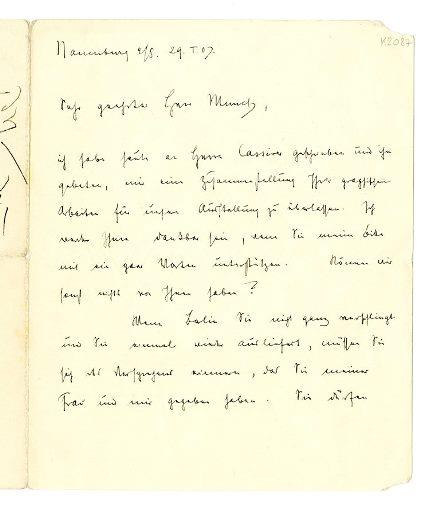 Naumburg a/S. 29. I. 07.
K2087
Sehr geehrter Herr Munch,
ich habe heute an Herrn Cassirer geschrieben und ihn
gebeten, mir eine Zusammenstellung Ihrer graphischen
Arbeiten für unsere Ausstellung zu überlassen. Ich
werde Ihnen dankbar sein, wenn Sie meine Bitte
mit ein paar Worten unterstützen. Können wir
sonst nichts von Ihnen haben?
Wenn Berlin Sie nicht ganz verschlingt
und Sie einmal wieder ausliefert, müssen Sie
sich des Versprechens erinnern, das Sie meiner
Frau und mir gegeben haben. Sie dürfen